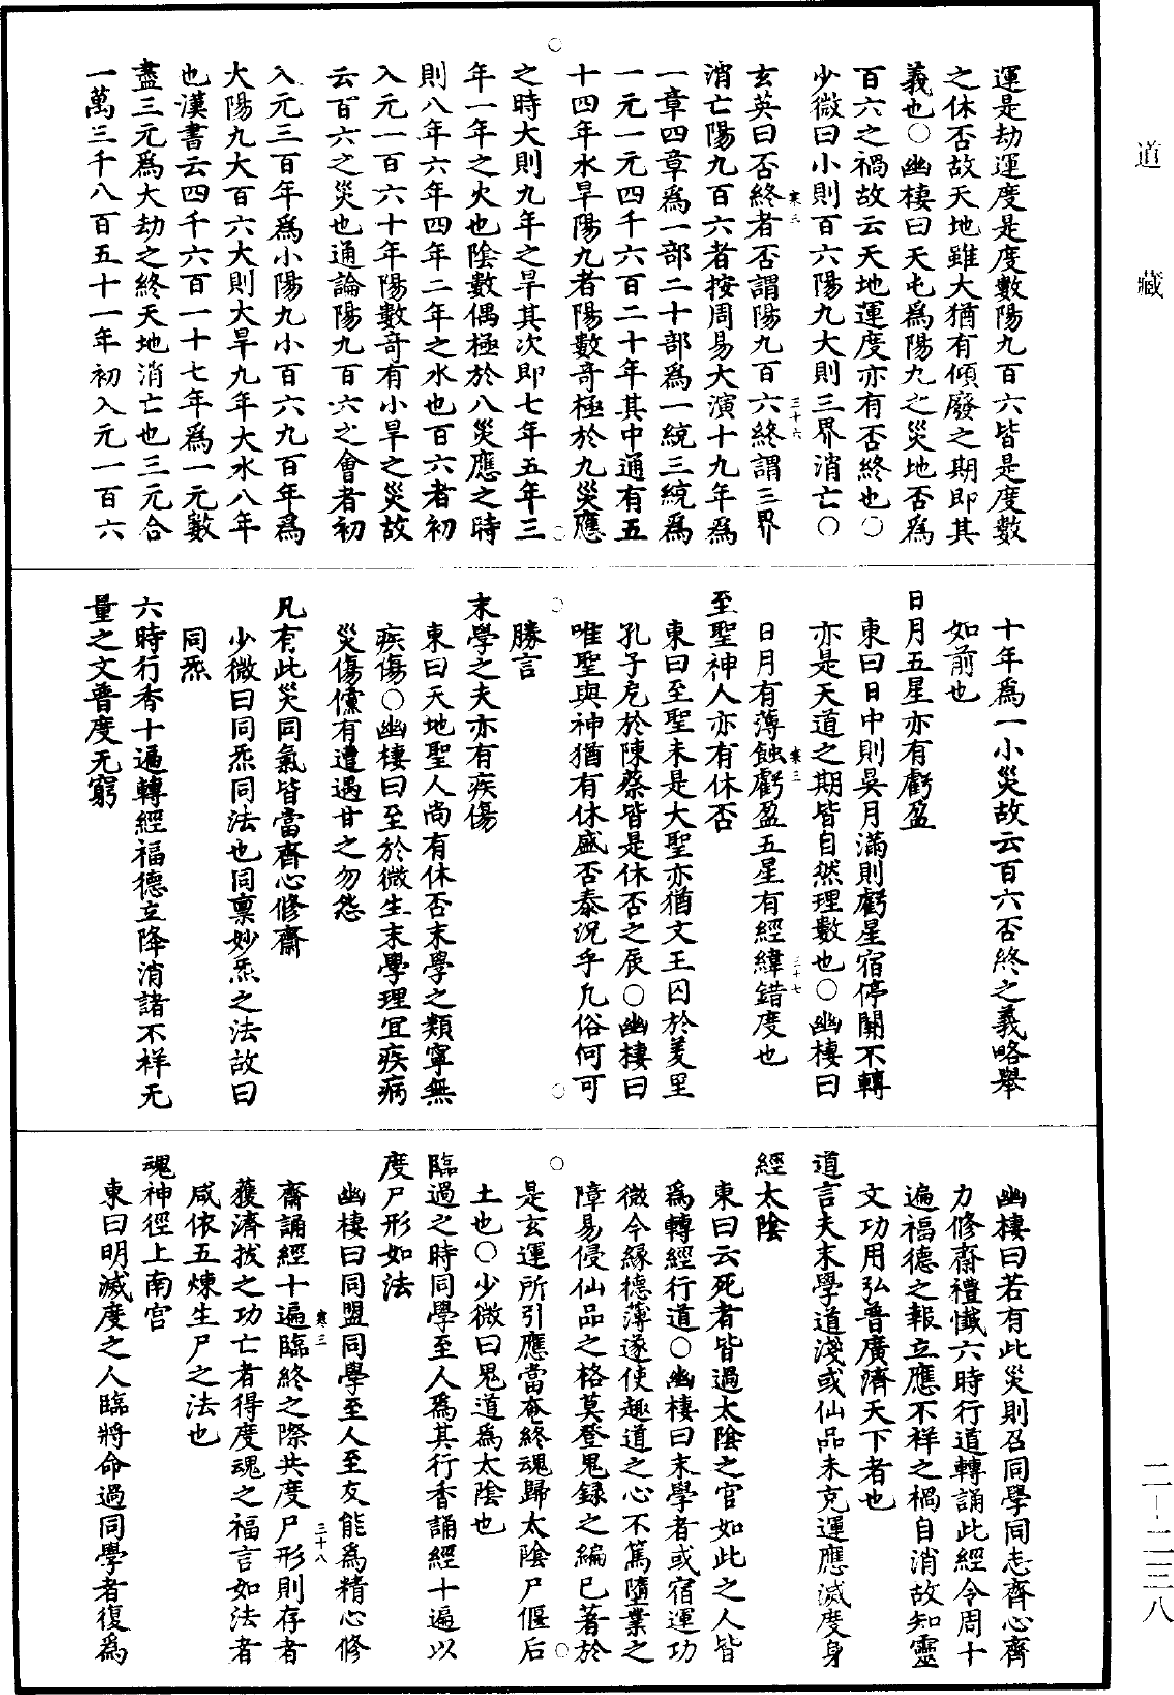 道藏
運是劫運度是度數陽九百六皆是度數
之休否故天地雖大猶有傾廢之期即其
義也○幽棲曰天屯為陽九之災地否為
百六之禍故云天地運度亦有否終也○
少微曰小則百六陽九大則三界消亡○
寒三
三十六
玄英曰否終者否謂陽九百六終謂三界
消亡陽九百六者按周易大演十九年為
一章四章為一部二十部為一統三統為
一元一元四千六百二十年其中通有五
十四年水旱陽九者陽數奇極於九災應
之時大則九年之旱其次即七年五年三
年一年之火也陰數偶極於八災應之時
則八年六年四年二年之水也百六者初
入元一百六十年陽數奇有小旱之災故
云百六之災也通論陽九百六之會者初
入元三百年為小陽九小百六九百年為
大陽九大百六大則大旱九年大水八年
也漢書云四千六百一十七年為一元數
盡三元為大劫之終天地消亡也三元合
一萬三千八百五十一年初入元一百六
十年為一小災故云百六否終之義略舉
如前也
日月五星亦有虧盈
東曰日中則昃月滿則虧星宿停關不轉
亦是天道之期皆自然理數也○幽棲曰
寒三
三十七
日月有薄蝕虧盈五星有經緯錯度也
至聖神人亦有休否
東曰至聖未是大聖亦猶文王囚於羑里
孔子厄於陳蔡皆是休否之辰○幽棲曰
唯聖與神猶有休盛否泰況乎凡俗何可
勝言
末學之夫亦有疾傷
東曰天地聖人尚有休否末學之類寧無
疾傷○幽棲曰至於微生末學理宜疾病
災傷儻有遭遇甘之勿怨
凡有此災同氣皆當齊心修齋
少微曰同炁同法也同稟妙炁之法故曰
同炁
六時行香十遍轉經福德立降消諸不祥无
量之文普度无窮
幽棲曰若有此災則召同學同志齊心齊
力修齋禮懺六時行道轉誦此經令周十
遍福德之報立應不祥之禍自消故知靈
文功用弘普廣濟天下者也
道言夫末學道淺或仙品未充運應滅度身
經太陰
東曰云死者皆過太陰之官如此之人皆
為轉經行道○幽棲曰末學者或宿運功
微今緣德薄遂使趣道之心不篤墮業之
障易侵仙品之格莫登鬼録之編已著於
是玄運所引應當奄終魂歸太陰尸偃后
土也○少微曰鬼道為太陰也
臨過之時同學至人為其行香誦經十遍以
度尸形如法
幽棲曰同盟同學至人至友能為精心修
寒三
三十八
齋誦經十遍臨終之際共度尸形則存者
獲濟拔之功亡者得度魂之福言如法者
咸依五煉生尸之法也
魂神徑上南宮
東曰明滅度之人臨將命過同學者復為
二—二三八